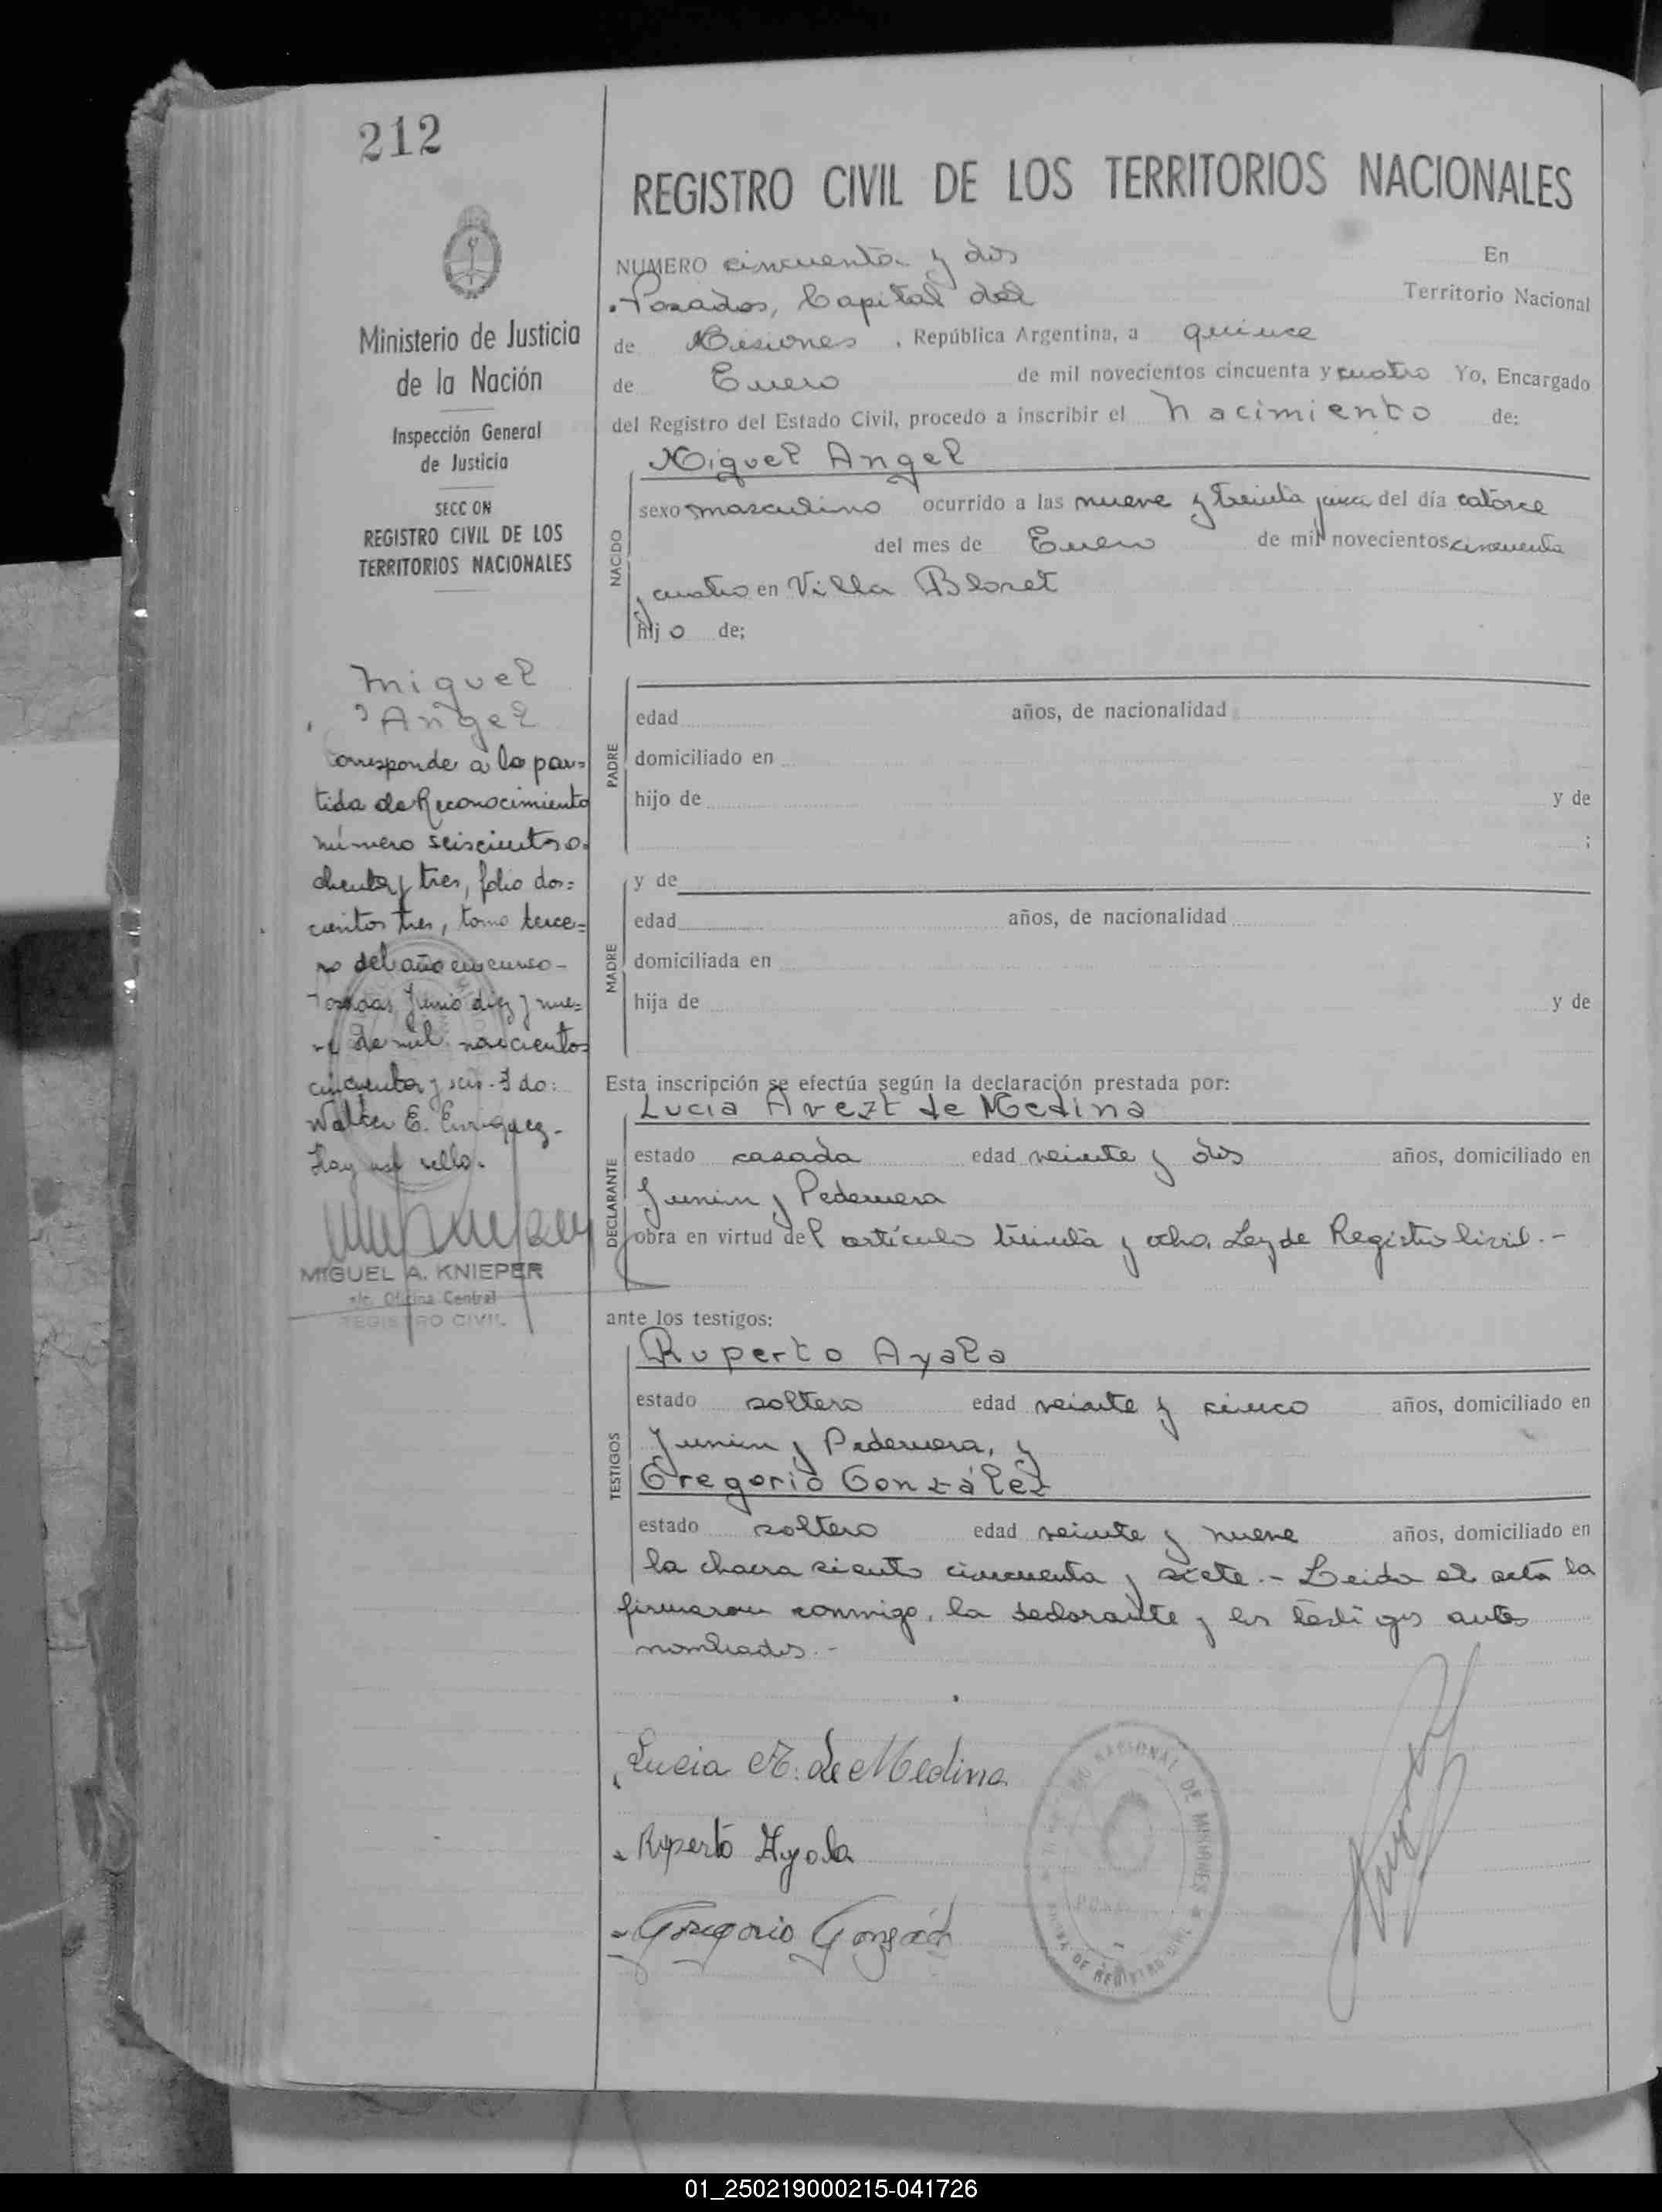 212
Ministerio de Justicia
de la Nación
Inspección General
de Justicia
SECC ON
REGISTRO CIVIL DE LOS
TERRITORIOS NACIONALES
Miguel
Angel
Corresponde a la par=
tida de Reconocimiento
número seiscientos o=
chenta y tres, folio dos=
cientos tres, tomo terce=
ro del año en curso-
Posadas, Junio diez y nue=
ve de mil novecientos
cincuenta y seis. Fdo:
Walter E. Enriquez.
Hay un sello.
MIGUEL A. KNIEPER
Oficina Central
REGISTRO CIVIL
REGISTRO CIVIL DE LOS TERRITORIOS NACIONALES
NUMERO cincuenta y dos En
Posadas, Capital del Territorio Nacional
de Misiones, República Argentina, a quince
de Enero de mil novecientos cincuenta y cuatro Yo, Encargado
del Registro del Estado Civil, procedo a inscribir el nacimiento de:
Miguel Angel
NACIDO
sexo masculino ocurrido a las nueve y treinta del día catorce
del mes de Enero de mil novecientos cincuenta
y cuatro en Villa Blosset
hijo de;
PADRE
edad años, de nacionalidad
domiciliado en
hijo de y de
;
MADRE
y de
edad años, de nacionalidad
domiciliada en
hija de y de
Esta inscripción se efectúa según la declaración prestada por:
Lucia Arezt de Medina
DECLARANTE
estado casada edad veinte y dos años, domiciliado en
Junin y Pedernera
obra en virtud del artículo treinta y ocho, Ley de Registro Civil.-
ante los testigos:
Ruperto Ayala
TESTIGOS
estado soltero edad veinte y cinco años, domiciliado en
Junin y Pedernera, y
Gregorio González
estado soltero edad veinte y nueve años, domiciliado en
la chacra ciento cincuenta y siete.- Leida el acta la
firmaron conmigo, la declarante y los testigos antes
nombrados.-
Lucia A. de Medina
Ruperto Ayala
Gregorio González
NACIONAL DE MISIONES
DE REGISTRO CIVIL
01_250219000215-041726